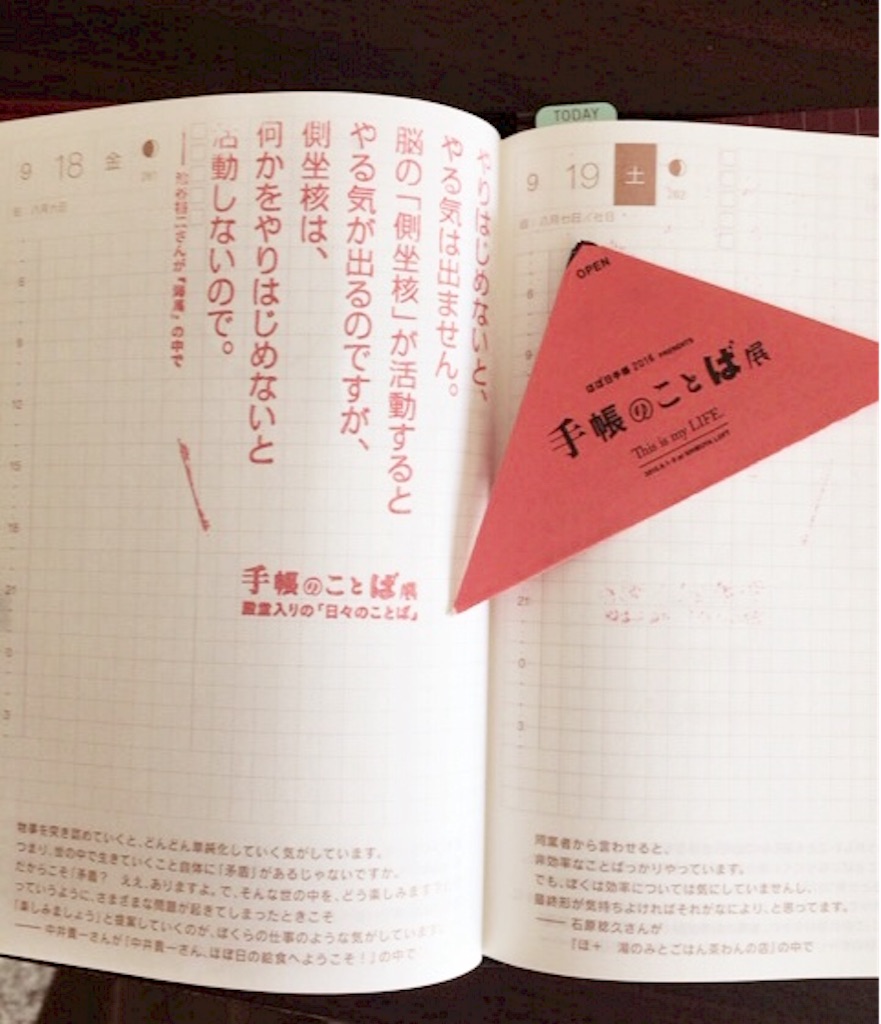 TODAY
9 18 金
261
八月六日
やりはじめないと、
やる気は出ません。
脳の「側坐核」が活動すると
やる気が出るのですが、
側坐核は、
何かをやりはじめないと
活動しないので。
の中で
手帳のことば展
殿堂入りの「日々のことば」
6
9
12
15
18
21
0
3
物事を突き詰めていくと、どんどん単純化していく気がしています。
つまり、世の中で生きていくこと自体に「矛盾」があるじゃないですか。
だからこそ「矛盾？ ええ、ありますよ。で、そんな世の中を、どう楽しみます？」
っていうように、さまざまな問題が起きてしまったときこそ
「楽しみましょう」と提案していくのが、ぼくらの仕事のような気がしています。
── 中井貴一さんが『中井貴一さん、ほぼ日の給食へようこそ！』の中で
9 19 土
262
八月七日／社日
OPEN
ほぼ日手帳 2016 PRESENTS
手帳のことば展
This is my LIFE.
6
9
21
0
3
同業者から言わせると、
非効率なことばっかりやっています。
でも、ぼくは効率については気にしていませんし、
最終形が気持ちよければそれがなにより、と思ってます。
── 石原稔久さんが
『ほ＋ 湯のみとごはん茶わんの店』の中で